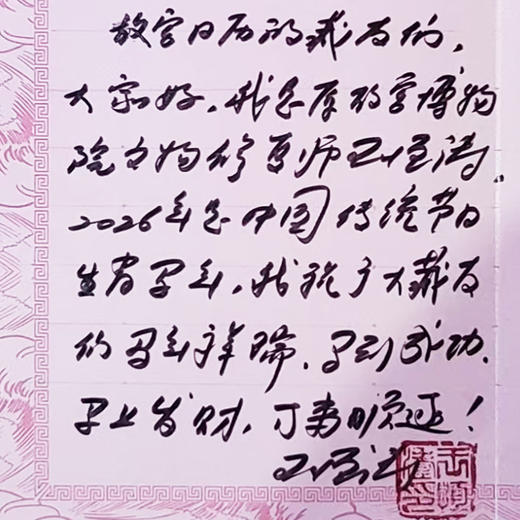 故宫日历的藏友们,
大家好,我是原故宫博物
院文物修复师王津涛。
2026年是中国传统节日
生肖马年,我祝广大藏友
们马年祥瑞、马到成功、
马上发财,万事顺遂!